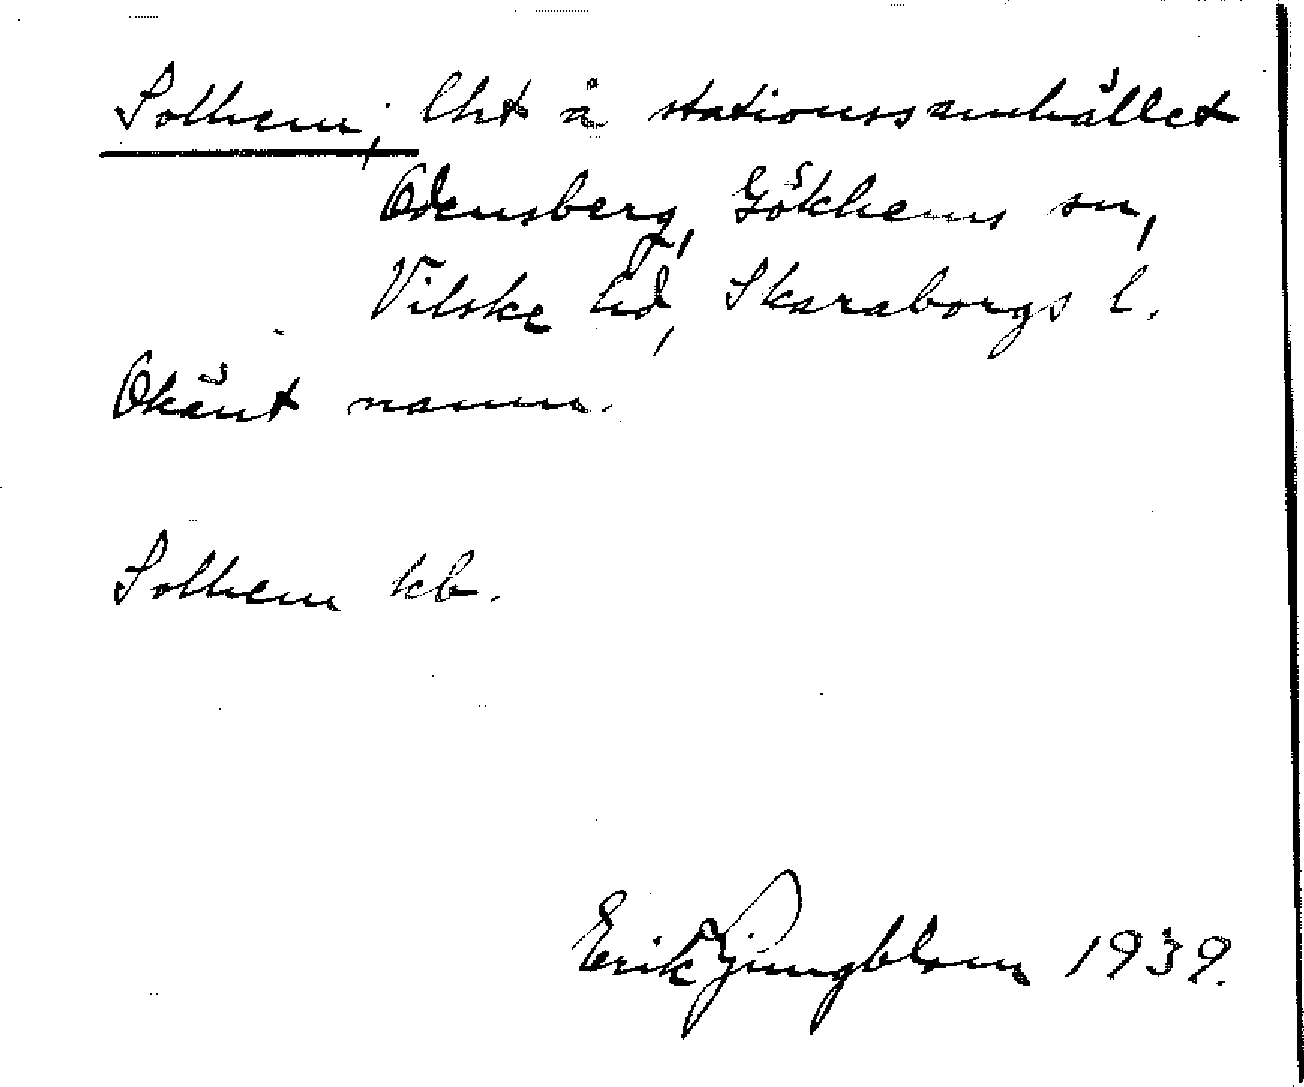 Solhem, lht å stationssamhället
Odensberg, Gökhems sn,
Vilske hd, Skaraborgs l.
Okänt namn.
Solhem kb.
Erik Ljungblom 1939.